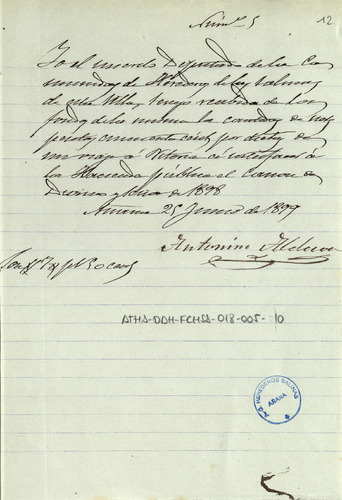 Núm. 5
12
Yo el infrascrito Diputado de la Co
munidad de Herederos de las Salinas
de esta Villa, tengo recibida de los
fondos de la misma la cantidad de tres
pesetas cincuenta cénts por dietas de
un viaje á Vitoria á satisfacer á
la Hacienda pública el Canon de
Minas año de 1898
Añana 25 Junio de 1897
Antonino
Son 3 pts 50 cents
ATHA-DAH-FCHSA-018-005-10
HEREDEROS SALINAS
AÑANA